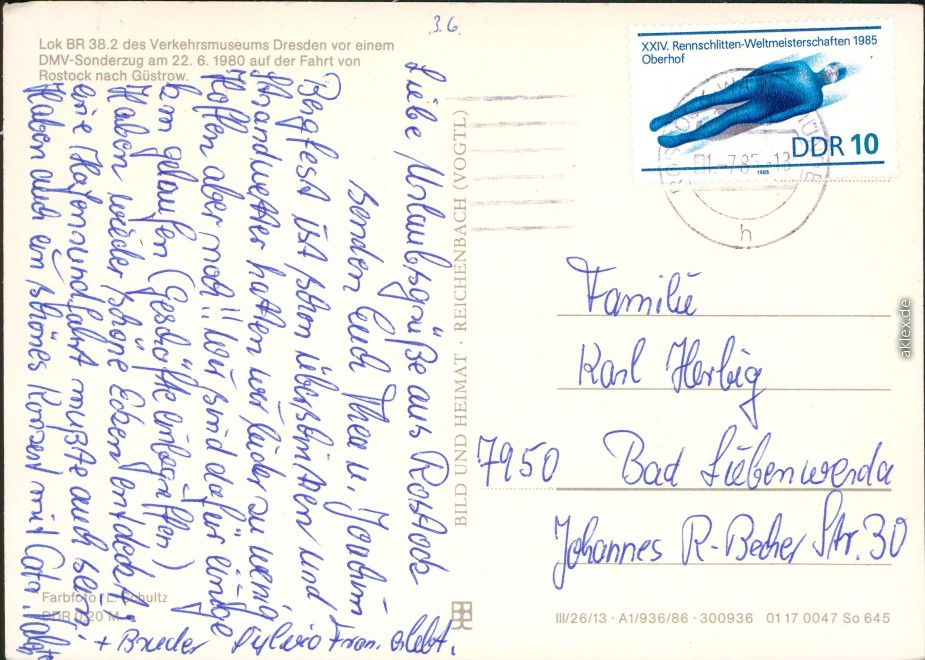 3.6.
Lok BR 38.2 des Verkehrsmuseums Dresden vor einem
DMV-Sonderzug am 22. 6. 1980 auf der Fahrt von
Rostock nach Güstrow.
Liebe Urlaubsgrüße aus Rostock
senden Euch Thea u. Joachim
Bergfest ist schon überschritten und
Strandwetter hatten wir leider zu wenig
Hoffen aber noch!! Wir sind dafür einige
km gelaufen (Geschäfte inbegriffen)
Haben wieder schöne Ecken entdeckt,
eine Hafenrundfahrt mußte auch sein,
Haben auch ein schönes Konzert mit
+ Bruder Sylvio Fran. erlebt.
Farbfoto: L. Schultz
DDR 0,20 M
BILD UND HEIMAT · REICHENBACH (VOGTL)
XXIV. Rennschlitten-Weltmeisterschaften 1985
Oberhof
DDR 10
1985
h
Familie
Karl Herbig
7950 Bad Liebenwerda
Johannes R-Becher Str. 30
III/26/13 · A1/936/86 · 300936 01 17 0047 So 645
aklex.de